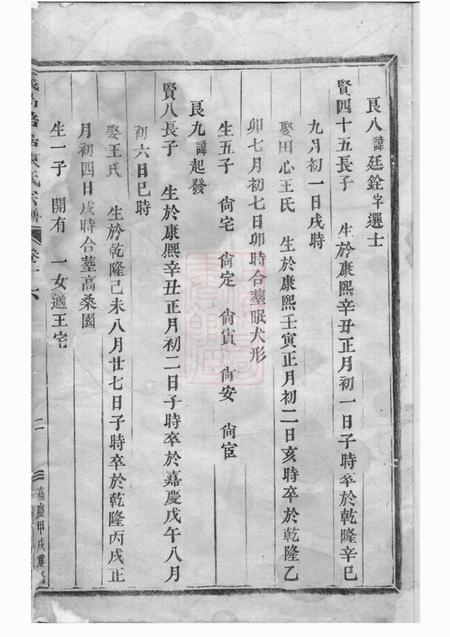 良八諱廷銓字選士
賢四十五長子 生於康熙辛丑正月初一日子時卒於乾隆辛巳
九月初一日戌時
娶田心王氏 生於康熙壬寅正月初二日亥時卒於乾隆乙
卯七月初七日卯時合墓眠犬形
生五子 尙宅 尙定 尙賓 尙安 尙宦
良九諱起發
賢八長子 生於康熙辛丑正月初二日子時卒於嘉慶戊午八月
初六日巳時
娶王氏 生於乾隆己未八月廿七日子時卒於乾隆丙戌正
月初四日戌時合墓高桑園
生一子 開有 一女適王宅
陳氏宗譜 卷十六
二
嘉慶甲戌重